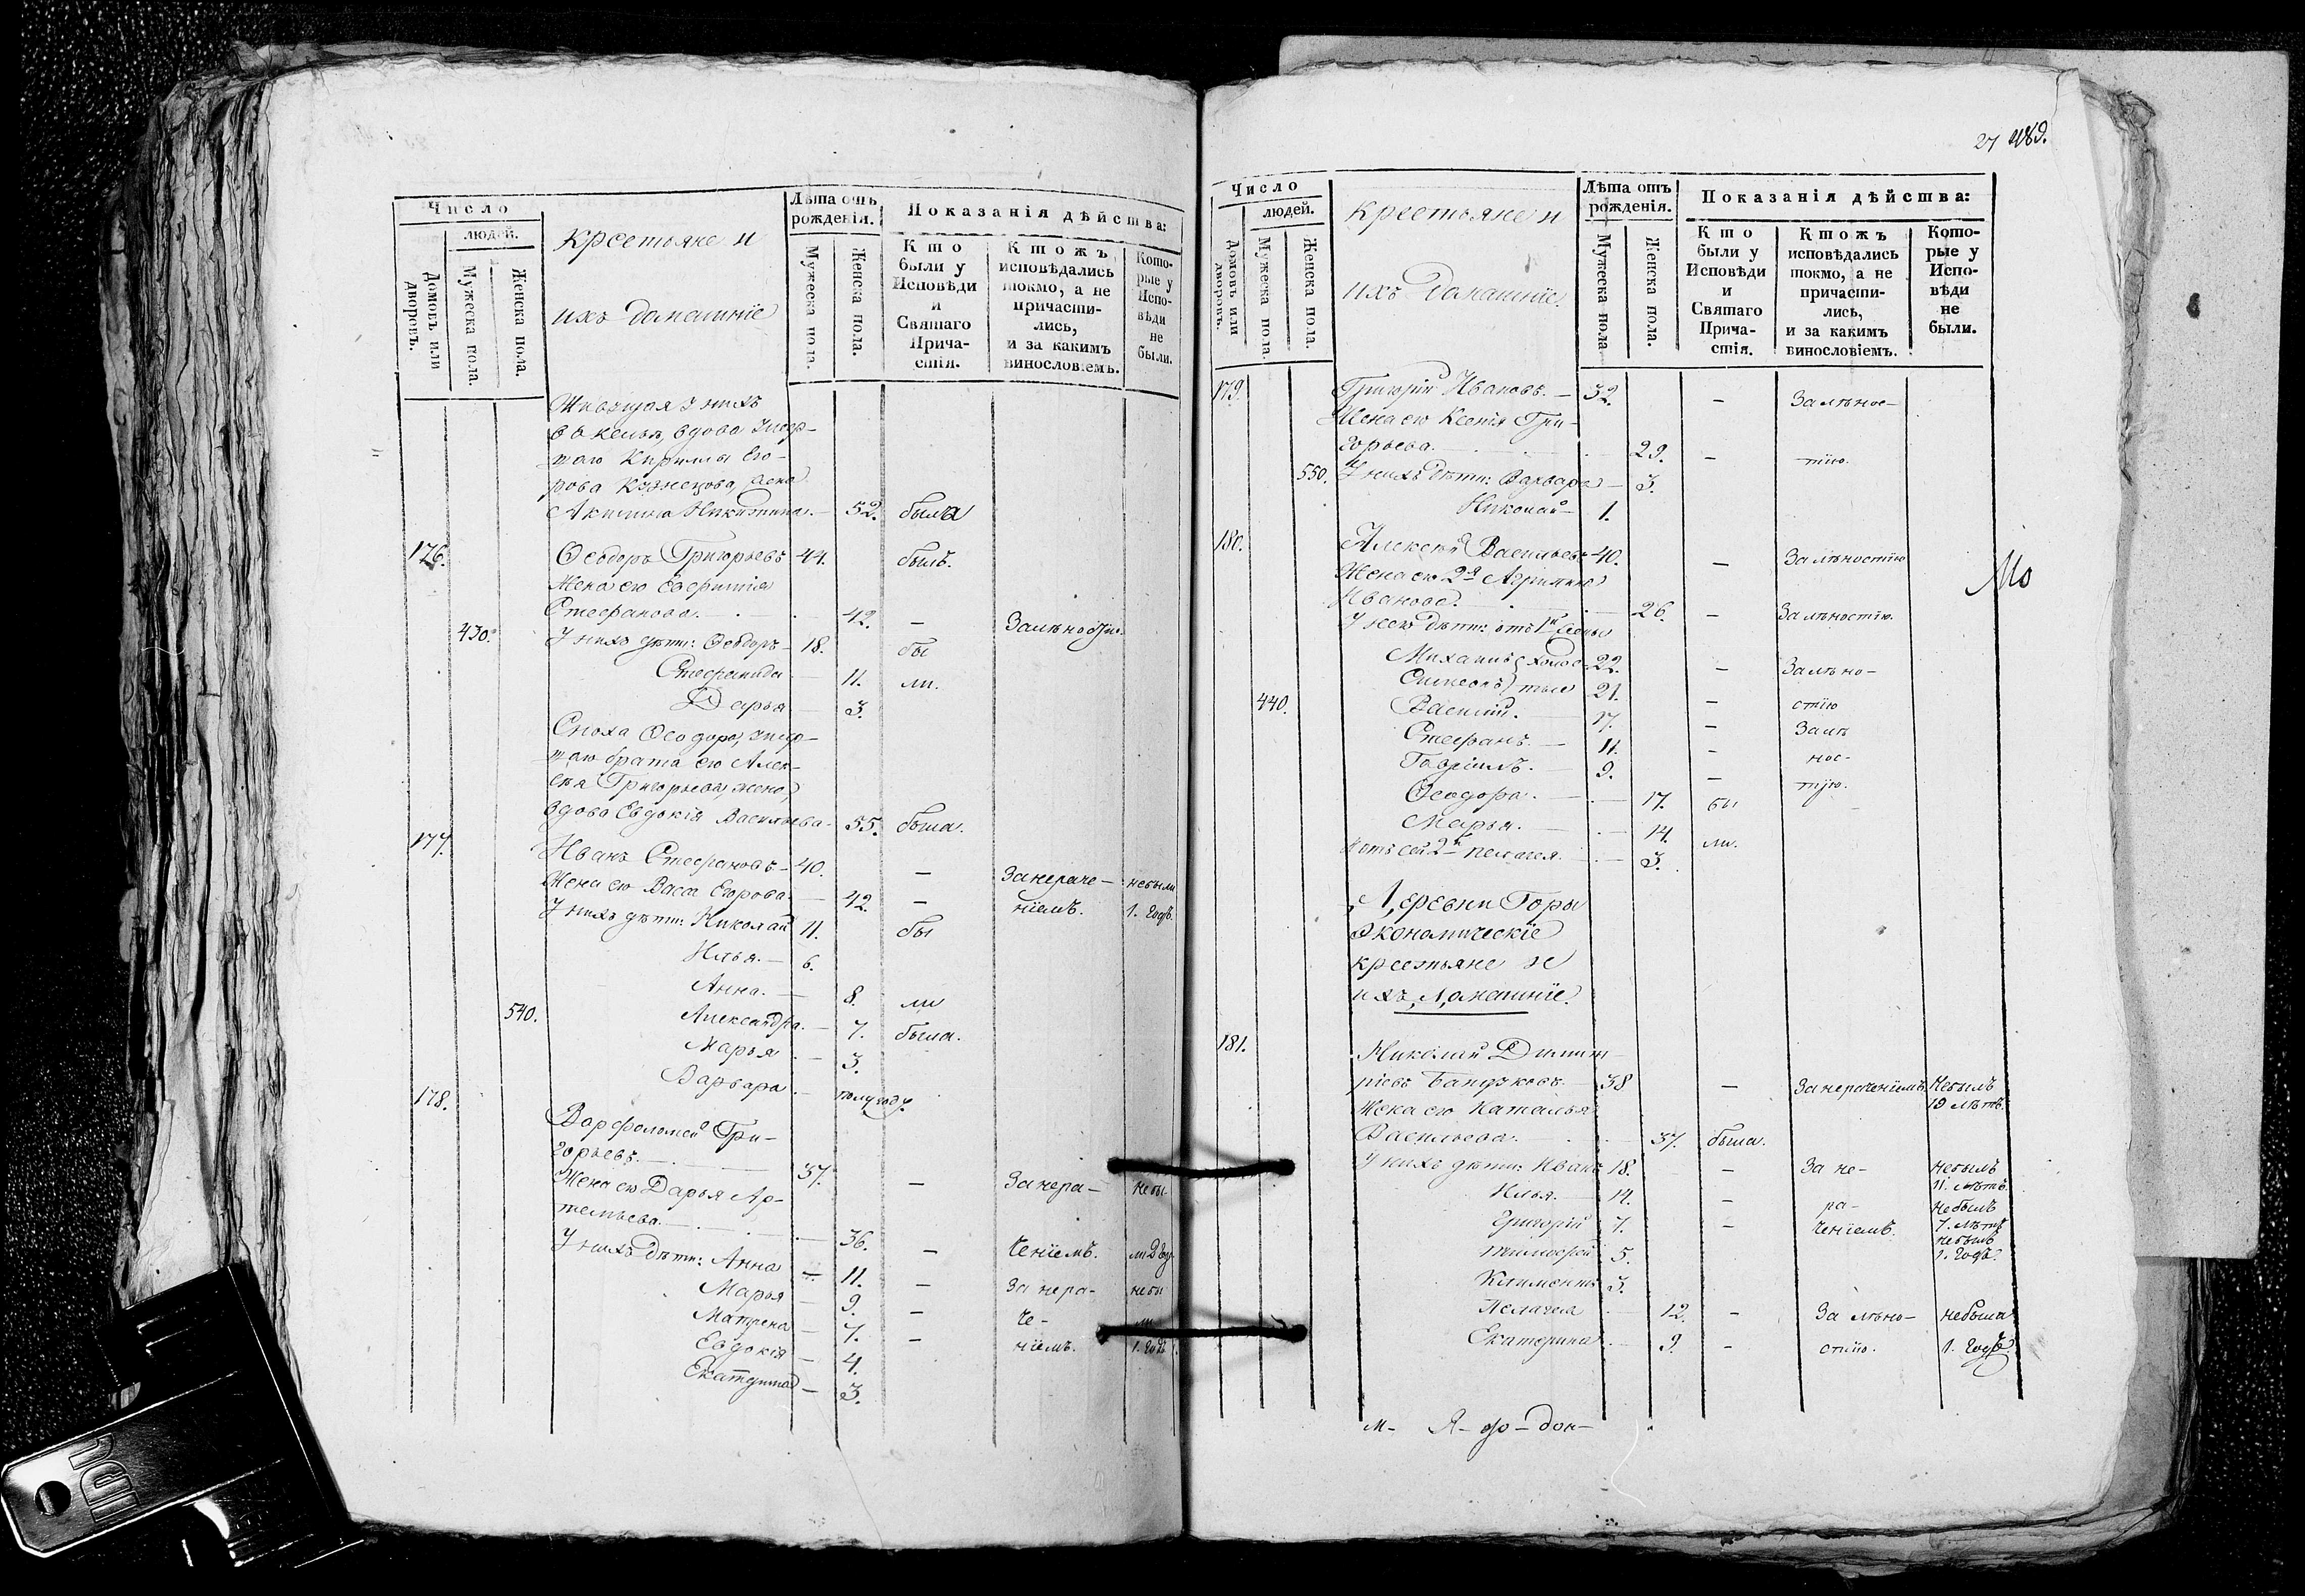 Число
людей.
Домовъ или дворовъ.
Мужеска пола.
Женска пола.
Крестьяне и
ихъ домашніе
Лѣта отъ рожденія.
Мужеска пола.
Женска пола.
Показанія дѣйства:
Кто были у Исповѣди и Святаго Прича-стія.
Ктожъ исповѣдались токмо, а не причасти-лись, и за какимъ винословіемъ.
Кото-рые у Испо-вѣди не были.
Живущая у нихъ
въ кельѣ, вдова умер-
шаго Кириллы Его-
рова Кузнецова, жена
Акилина Никитина. 52. была
176. Ѳеодоръ Григорьевъ 44. былъ.
Жена его Евфимія
Стефанова. 42. — За лѣностію.
430. У нихъ дѣти: Ѳеодоръ 18. бы
Стефанида 11. ли.
Дарья 3.
Сноха Ѳеодора, умер-
шаго брата его Алек-
сѣя Григорьева, жена,
вдова Евдокія Васильева 55. была.
177. Иванъ Стефановъ 40. — За нераче- небыли
Жена его Васса Егорова. 42. — ніемъ. 1. годъ.
У нихъ дѣти: Николай 11. бы
Илья. 6.
Анна. 8. ли
540. Александра. 7. была.
Марья 3.
Варвара полугоду.
178. Варфоломей Гри-
горьевъ. 37. — За нера- небы
Жена его Дарья Ар-
темьева. 36. — ченіемъ.
У нихъ дѣти: Анна 11. — За нера- небы
Марья 9. — че- ли
Матрена 7. — ніемъ. 1. годъ.
Евдокія 4.
Екатерина 3.
27 489.
Число
людей.
Домовъ или дворовъ.
Мужеска пола.
Женска пола.
Крестьяне и
ихъ домашніе.
Лѣта отъ рожденія.
Мужеска пола
Женска пола.
Показанія дѣйства:
Кто были у Исповѣди и Святаго Прича-стія.
Ктожъ исповѣдались токмо, а не причасти-лись, и за какимъ винословіемъ.
Кото-рые у Испо-вѣди не были.
179. Григорій Ивановъ. 32. — За лѣнос-
Жена его Ксенія Гри-
горьева. 29. — тію.
550. У нихъ дѣти: Варвара 3.
Николай 1.
180. Алексѣй Васильевъ 40. — За лѣностію
Жена его 2я Агрипина
Иванова. 26. — За лѣностію.
У него дѣти: отъ 1й жены
Михаилъ холос- 22. — За лѣно-
Симеонъ тые 21. — стію
440. Василій. 17. — За лѣ
Стефанъ. 11. — нос-
Гавріилъ. 9. — тію.
Ѳеодора. 17. бы
Марья. 14. ли.
И отъ сей 2й Пелагея. 3.
Мо
Деревни Горы
Экономическіе
крестьяне и
ихъ домашніе
181. Николай Димит-
ріевъ 38 — За нераченіемъ. Небылъ 19 лѣтъ.
Жена его Наталья
Васильева. 37. была.
У нихъ дѣти: Иванъ 18. — За не- небылъ 11. лѣтъ.
Илья. 14. — ра- небылъ 7. лѣтъ
Григорій 7. — ченіемъ. небылъ 1. годъ.
Тимофей 5.
Климентъ 3.
Пелагея 12. — За лѣно- небыла
Екатерина. 9. — стію. 1. годъ.